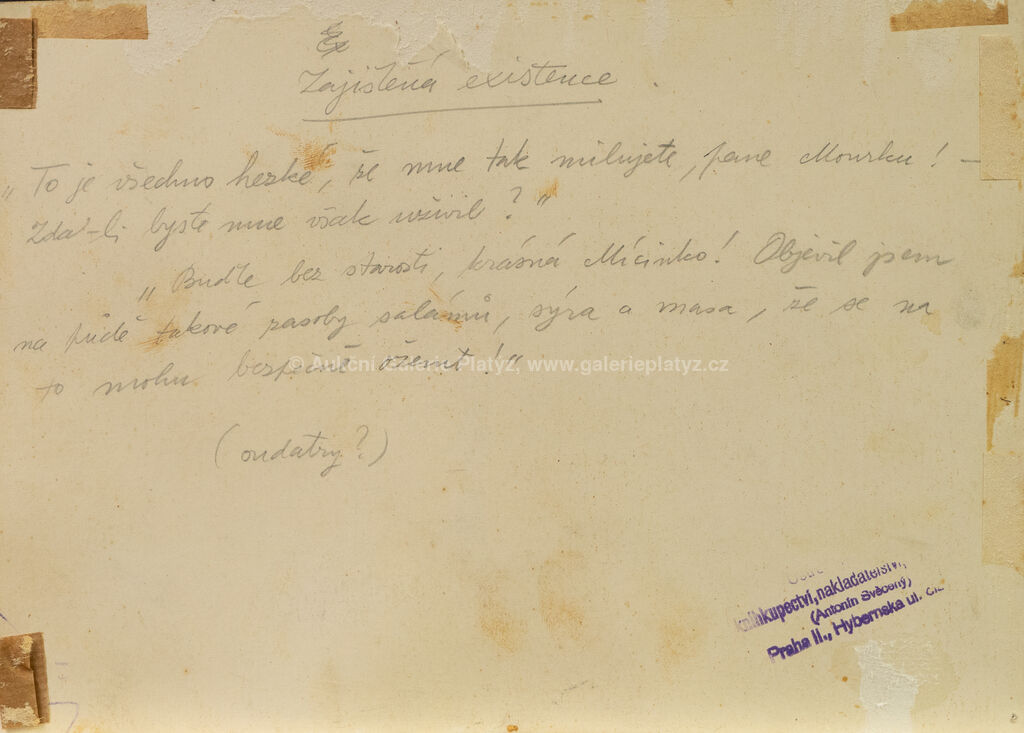 Ex
Zajištěná existence.
„To je všechno hezké, že mne tak milujete, pane Mourku! –
Zda-li byste mne však uživil?“
„Buďte bez starosti, krásná Micinko! Objevil jsem
na půdě takové zásoby salámů, sýra a masa, že se na
to mohu bezpečně oženit!“
© Aukční Galerie Platýz, www.galerieplatyz.cz
(ondatry?)
knihkupectví, nakladatelství,
(Antonín Svěcený)
Praha II., Hybernska ul.